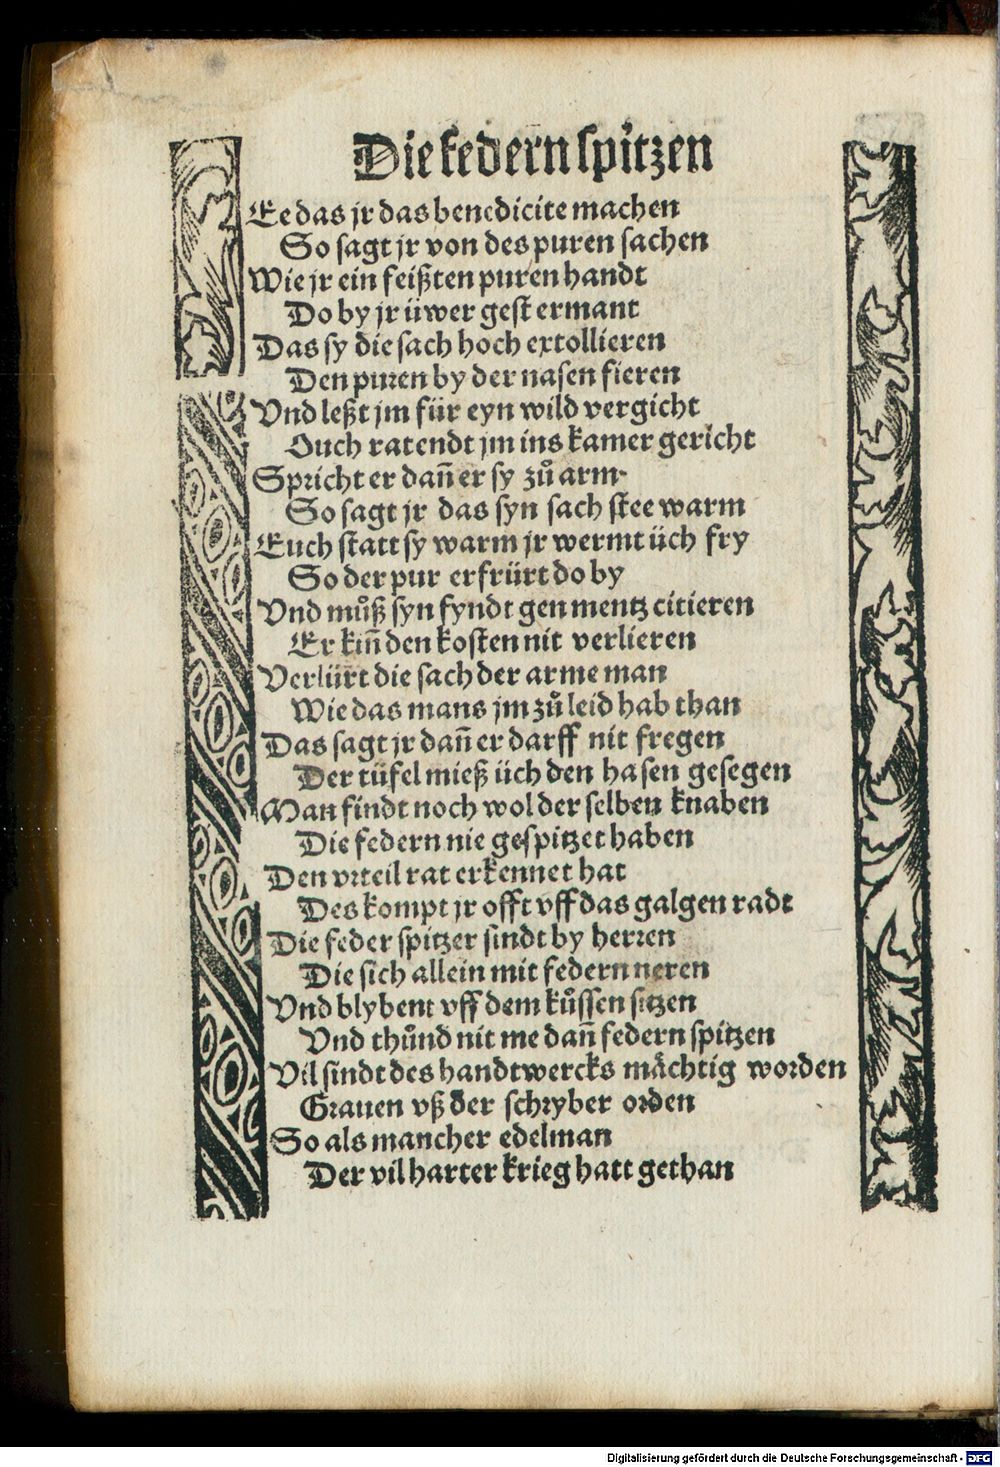 Die federn spitzen
Ee das jr das benedicite machen
So sagt jr von des puren sachen
Wie jr ein feißten puren handt
Do by jr üwer gest ermant
Das sy die sach hoch extollieren
Den puren by der nasen fieren
Vnd leßt jm für eyn wild vergicht
Ouch ratendt jm ins kamer gericht
Spricht er dañ er sy zů arm
So sagt jr das syn sach stee warm
Euch statt sy warm jr wermt üch fry
So der pur erfrürt do by
Vnd můß syn fyndt gen mentz citieren
Er kiñ den kosten nit verlieren
Verlürt die sach der arme man
Wie das mans jm zů leid hab than
Das sagt jr dañ er darff nit fregen
Der tüfel mieß üch den hasen gesegen
Man findt noch wol der selben knaben
Die federn nie gespitzet haben
Den vrteil rat erkennet hat
Des kompt jr offt vff das galgen radt
Die feder spitzer sindt by herren
Die sich allein mit federn neren
Vnd blybent vff dem kůssen sitzen
Vnd thůnd nit me dañ federn spitzen
Vil sindt des handtwercks mächtig worden
Grauen vß der schryber orden
So als mancher edelman
Der vil harter krieg hatt gethan
Digitalisierung gefördert durch die Deutsche Forschungsgemeinschaft - DFG